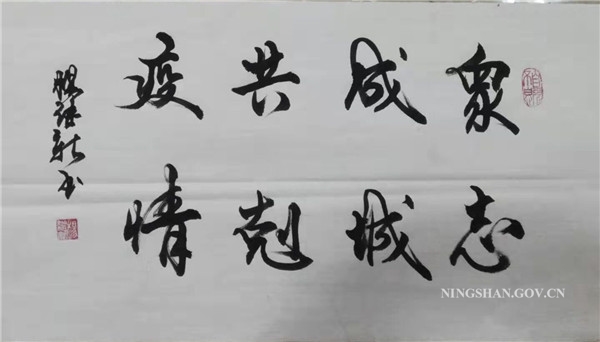 眾志
成城
共剋
疫情
NINGSHAN.GOV.CN